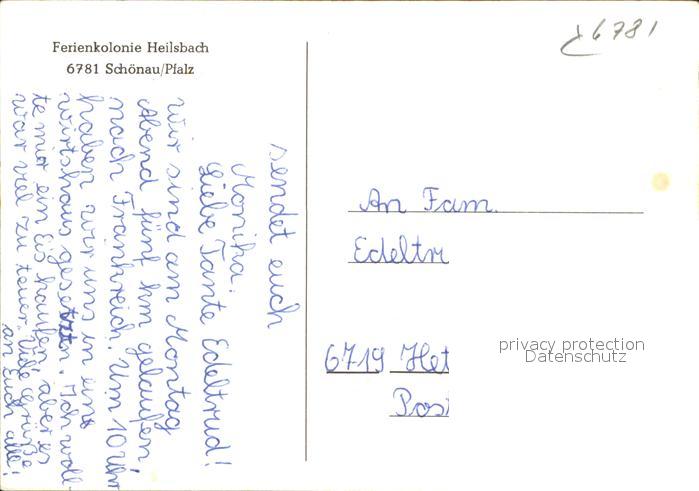 Ferienkolonie Heilsbach
6781 Schönau/Pfalz
6781
Liebe Tante Edeltrud!
Wir sind am Montag
Abend fünf km gelaufen,
nach Frankreich. Um 10 Uhr
haben wir uns in ein
Wirtshaus gesetzten. Ich woll-
te mir ein Eis kaufen, aber es
war viel zu teuer. Viele Grüße
an Euch alle!
sendet euch
Monika.
An Fam.
Edeltr
6719 Het
Pos
privacy protection
Datenschutz